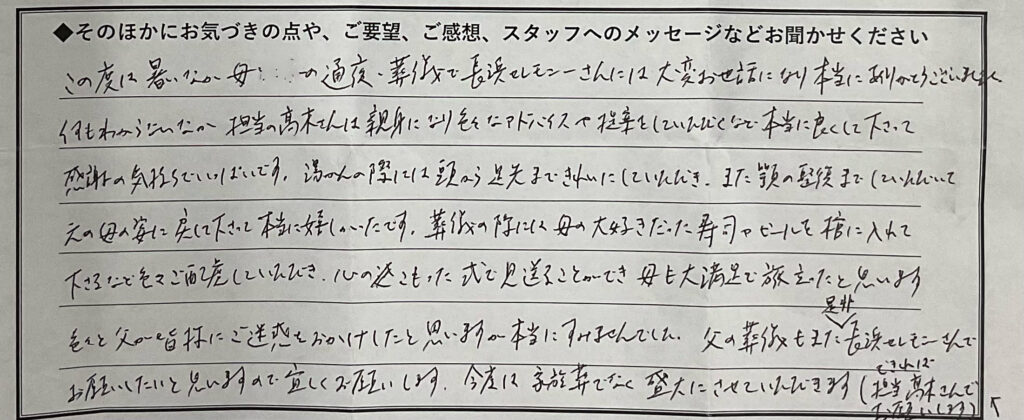 ◆そのほかにお気づきの点や、ご要望、ご感想、スタッフへのメッセージなどお聞かせください
この度は暑いなか母 の通夜・葬儀で長浜セレモニーさんには大変お世話になり本当にありがとうございました
何もわからないなか担当の高木さんは親身になり色々なアドバイスや提案をしていただくなど本当に良くして下さって
感謝の気持ちでいっぱいです。湯かんの際には頭から足先まできれいにしていただき、また顎の整復までしていただいて
元の母の姿に戻して下さって本当に嬉しかったです。葬儀の際には母の大好きだった寿司やビールを棺に入れて
下さるなど色々ご配慮していただき、心の込もった式で見送ることができ母も大満足で旅立ったと思います
色々と父が皆様にご迷惑をおかけしたと思いますが本当にすみませんでした。父の葬儀もまた是非長浜セレモニーさんで
お願いしたいと思いますので宜しくお願いします。今度は家族葬でなく盛大にさせていただきます(できれば担当高木さんで
お願いします)